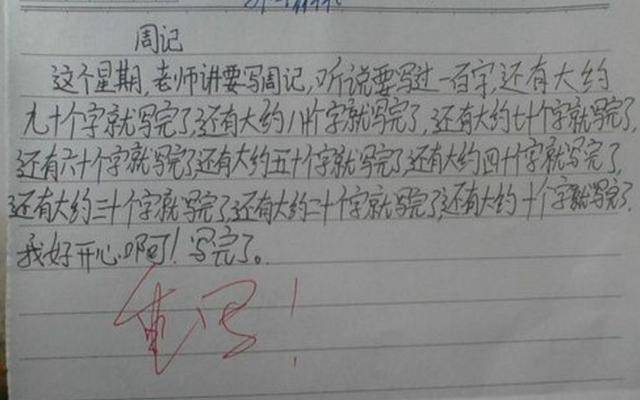 周记
这个星期,老师讲要写周记,听说要写过一百字,还有大约
九十个字就写完了,还有大约八十个字就写完了,还有大约七十个字就写完了,
还有六十个字就写完了还有大约五十个字就写完了还有大约四十个字就写完了,
还有大约三十个字就写完了,还有大约二十个字就写完了,还有大约十个字就写完了.
我好开心啊!写完了。
重写!